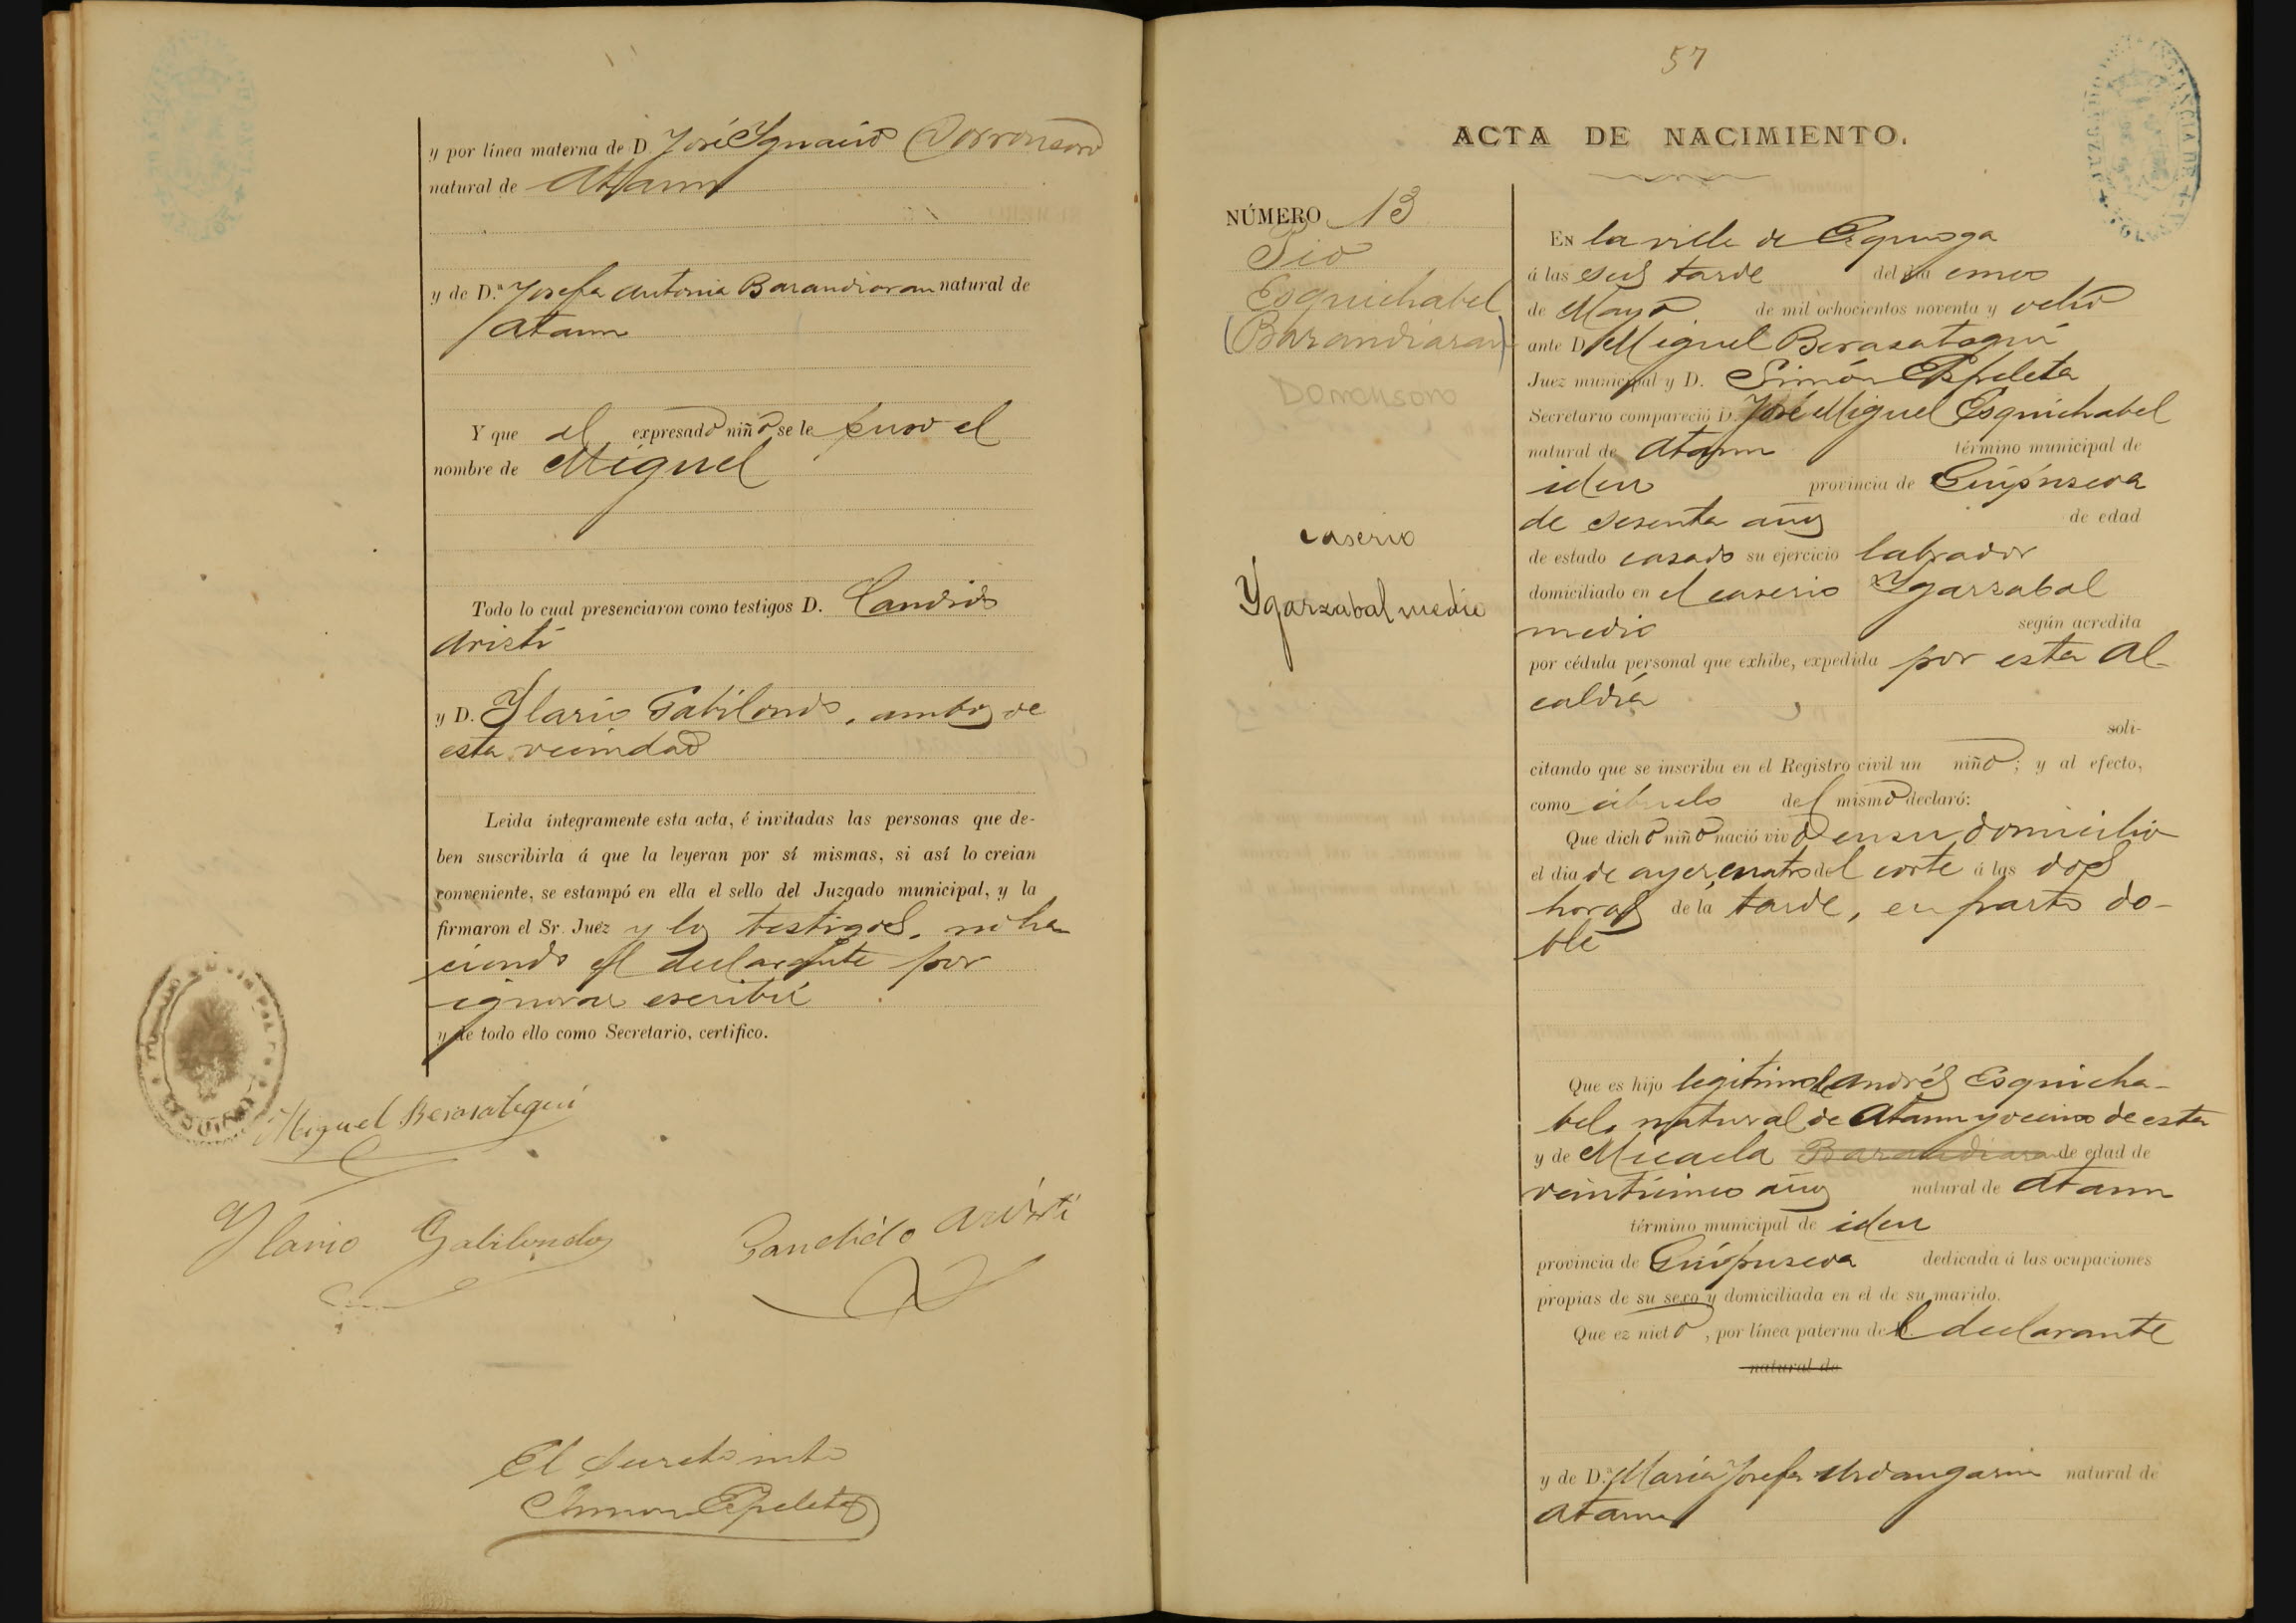 y por línea materna de D. José Ygnacio Dorronsoro
natural de Ataun
y de D.ª Josefa Antonia Barandiaran natural de
Ataun
Y que al expresado niño se le puso el
nombre de Miguel
Todo lo cual presenciaron como testigos D. Candido
Aristi
y D. Ylario Gabilondo, ambos de
esta vecindad
Leida íntegramente esta acta, é invitadas las personas que de-
ben suscribirla á que la leyeran por sí mismas, si así lo creian
conveniente, se estampó en ella el sello del Juzgado municipal, y la
firmaron el Sr. Juez y los testigos, no ha-
ciendo el declarante por
ignorar escribir
y de todo ello como Secretario, certifico.
Miguel Berasategui
Ylario Gabilondo Candido Aristi
El Secretario
Simon Espeleta
57
ACTA DE NACIMIENTO.
NÚMERO 13
Pio
Esquichabel
(Barandiaran)
Dorronsoro
caserio
Ygarzabal medio
En la villa de Ezquioga
á las seis tarde del dia cinco
de Mayo de mil ochocientos noventa y ocho
ante D. Miguel Berasategui
Juez municipal y D. Simón Espeleta
Secretario compareció D. José Miguel Esquichabel
natural de Ataun término municipal de
iden provincia de Guipúscoa
de sesenta años de edad
de estado casado su ejercicio labrador
domiciliado en el caserio Ygarzabal
medio según acredita
por cédula personal que exhibe, expedida por esta Al-
caldía
soli-
citando que se inscriba en el Registro civil un niño; y al efecto,
como abuelo del mismo declaró:
Que dicho niño nació vivo en su domicilio
el dia de ayer, cuatro del corte á las dos
horas de la tarde, en parto do-
ble
Que es hijo legitimo de Andrés Esquicha-
bel, natural de Ataun y vecino de esta
y de Micaela Barandiaran de edad de
veinticinco años natural de Ataun
término municipal de iden
provincia de Guipuscoa dedicada á las ocupaciones
propias de su sexo y domiciliada en el de su marido.
Que ez nieto, por línea paterna del declarante
natural de
y de D.ª Maria Josefa Urdangarin natural de
Ataun